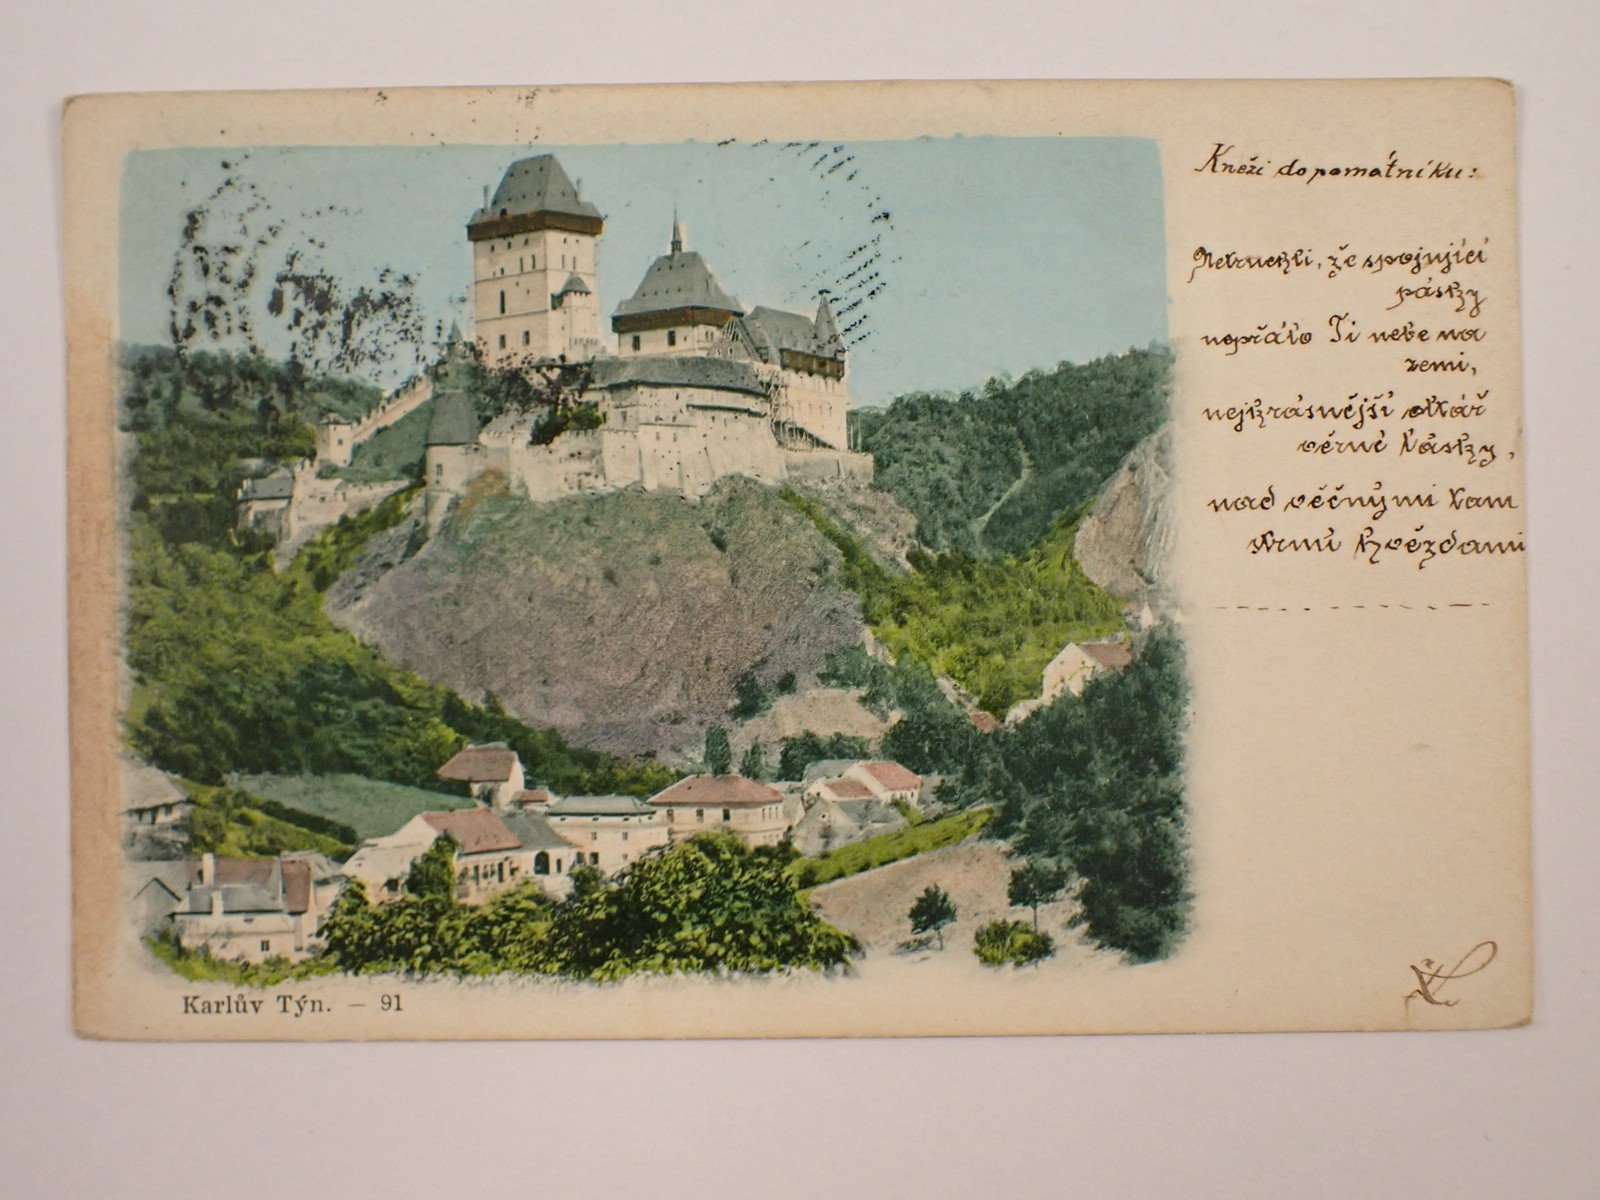 Kněži do památníku:
Netruchli, že spojující
pásky
nepřálo Ti nebe na
zemi,
nejkrásnější oltář
věrné lásky,
nad věčnými tam
hvězdami
Karlův Týn. — 91